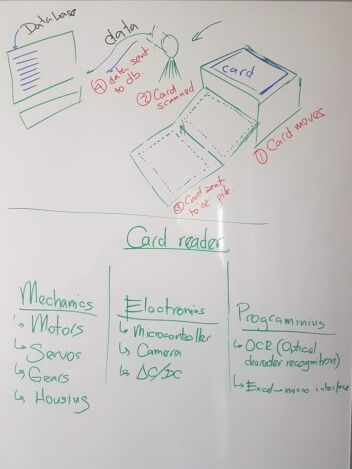 Database
data
card
④ data sent
to db.
② Card
scanned
① Card moves
③ Card sent
to "ok" pile
Card reader
Mechanics
↳ Motors
↳ Servos
↳ Gears
↳ Housing
Electronics
↳ Microcontroller
↳ Camera
↳ AC/DC
Programming
↳ OCR (Optical
character recognition)
↳ Excel-micro interface